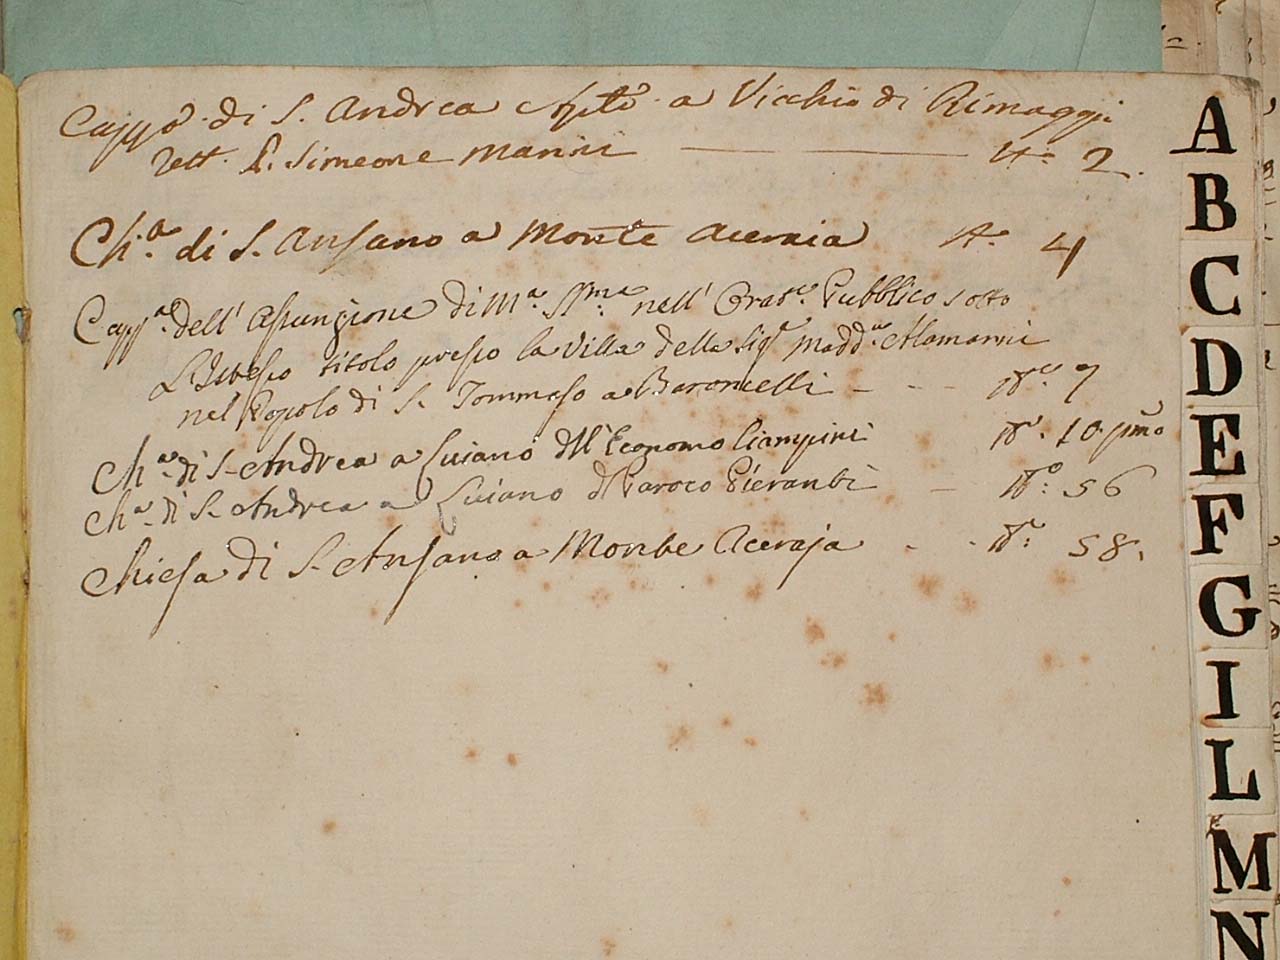 Cappa. di S. Andrea Aplo. a Vicchio di Rimaggi
Rett. P. Simeone Manni — No. 2.
Cha. di S. Ansano a Monte Aceraia No. 4
Cappa. dell' Assunzione di Ma. SSma. nell' Orato. Pubblico sotto
L'istesso titolo presso la Villa della Siga. Madda. Alamanni
nel Popolo di S. Tommaso a Baroncelli - - - No. 7
Cha. di S. Andrea a Luiano dell'Economo Ciampini No. 10. pmo
Cha. di S. Andrea a Luiano del Paroco Pieranti — No. 56
Chiesa di S. Ansano a Monte Aceraja - - No. 58.
A
B
C
D
E
F
G
I
L
M
N